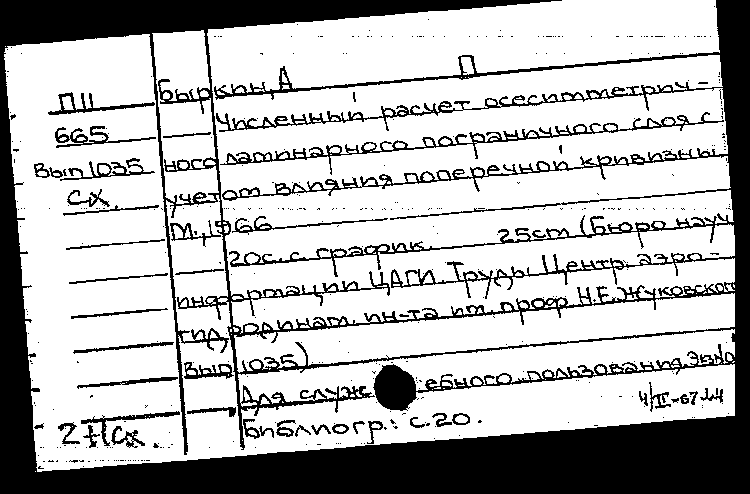 П11 Быркин, А П
665 Численный расчет осесимметрич-
Вып 1035 ного ламинарного пограничного слоя с
сх. учетом влияния поперечной кривизны
М., 1966
20с. с график. 25см (Бюро науч
информации ЦАГИ. Труды Центр. аэро-
гидродинам. ин-та им. проф Н.Е. Жуковского
Вып 1035)
Для служебного пользования.
4/II-67
2+1сх. Библиогр.: с. 20.